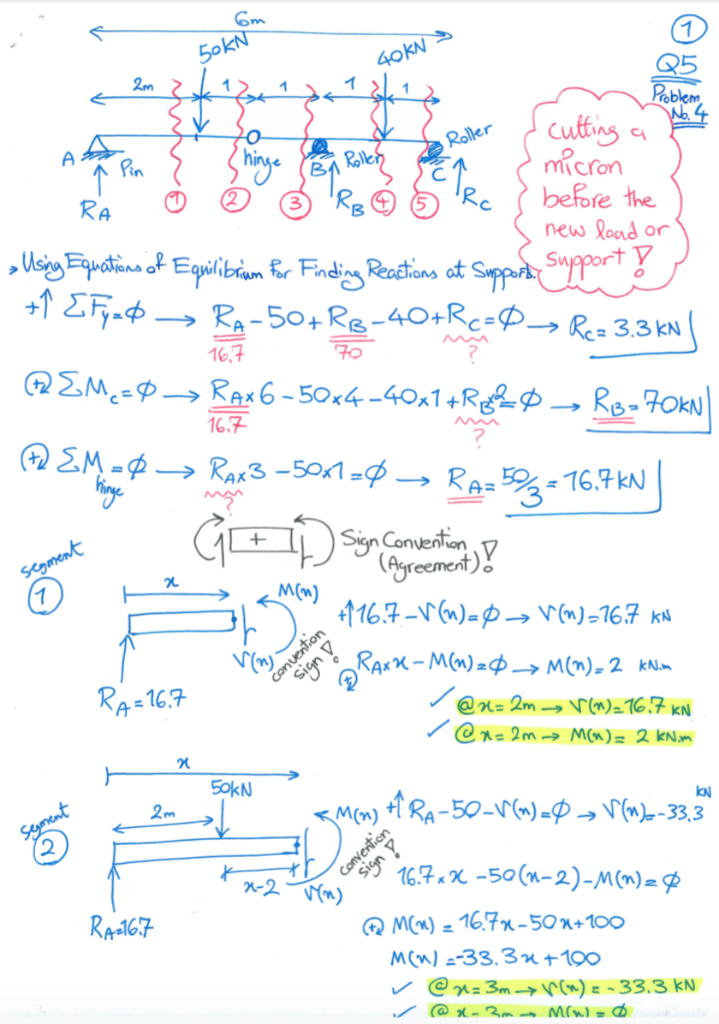 1
Q5
Problem No. 4
6m
50KN
40KN
2m 1 1 1 1
A Pin hinge B Roller C Roller
RA 1 2 3 RB 4 5 RC
cutting a
micron
before the
new load or
support!
Using Equations of Equilibrium for Finding Reactions at Supports.
+↑ ΣFy=∅ → RA-50+RB-40+RC=∅ → RC=3.3KN
16.7 70 ?
(+↻) ΣMc=∅ → RA×6-50×4-40×1+RB×2=∅ → RB=70KN
16.7 ?
(+↻) ΣM hinge=∅ → RA×3-50×1=∅ → RA=50/3=16.7KN
?
+ Sign Convention
(Agreement)!
segment
1
x M(x)
V(x) convention sign!
RA=16.7
+↑16.7-V(x)=∅ → V(x)=16.7 KN
(+↻) RA×x-M(x)=∅ → M(x)=2 KN.m
✓ @x=2m → V(x)=16.7 KN
✓ @x=2m → M(x)=2 KN.m
segment
2
x
50KN
2m
x-2
M(x)
V(x)
convention sign!
RA=16.7
+↑ RA-50-V(x)=∅ → V(x)=-33.3 KN
16.7×x-50(x-2)-M(x)=∅
(+↻) M(x)=16.7x-50x+100
M(x)=-33.3x+100
✓ @x=3m → V(x)=-33.3 KN
✓ @x=3m → M(x)=∅